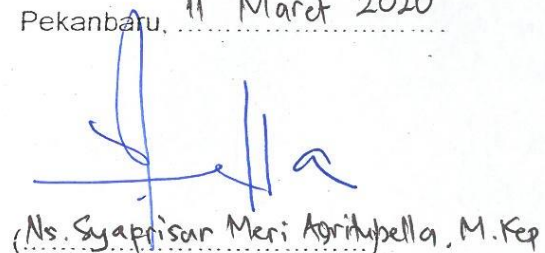 Pekanbaru, 11 Maret 2020
(Ns. Syaprisar Meri Agritubella, M.Kep